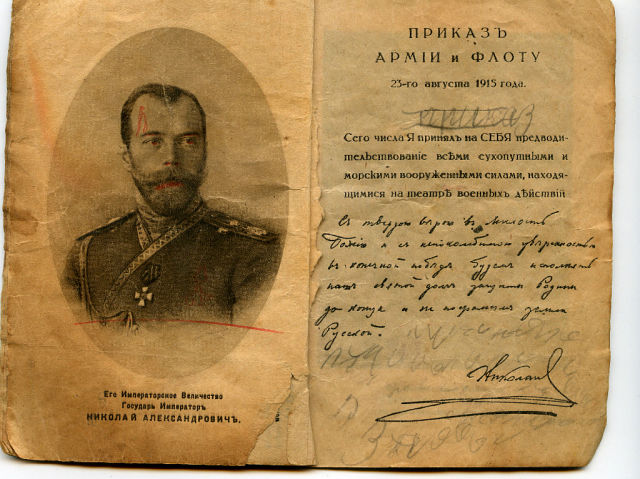 Его Императорское Величество
Государь Императоръ
НИКОЛАЙ АЛЕКСАНДРОВИЧЪ.
ПРИКАЗЪ
АРМІИ и ФЛОТУ
23-го августа 1915 года.
приказ
Сего числа Я принялъ на СЕБЯ предводи-
тельствованіе всѣми сухопутными и
морскими вооруженными силами, находя-
щимися на театрѣ военныхъ дѣйствій
Съ твердою вѣрою въ милость
Божію и съ непоколебимой увѣренностью
въ конечной побѣдѣ будемъ исполнять
нашъ святой долгъ защиты Родины
до конца и не посрамимъ земли
Русской.
Николай